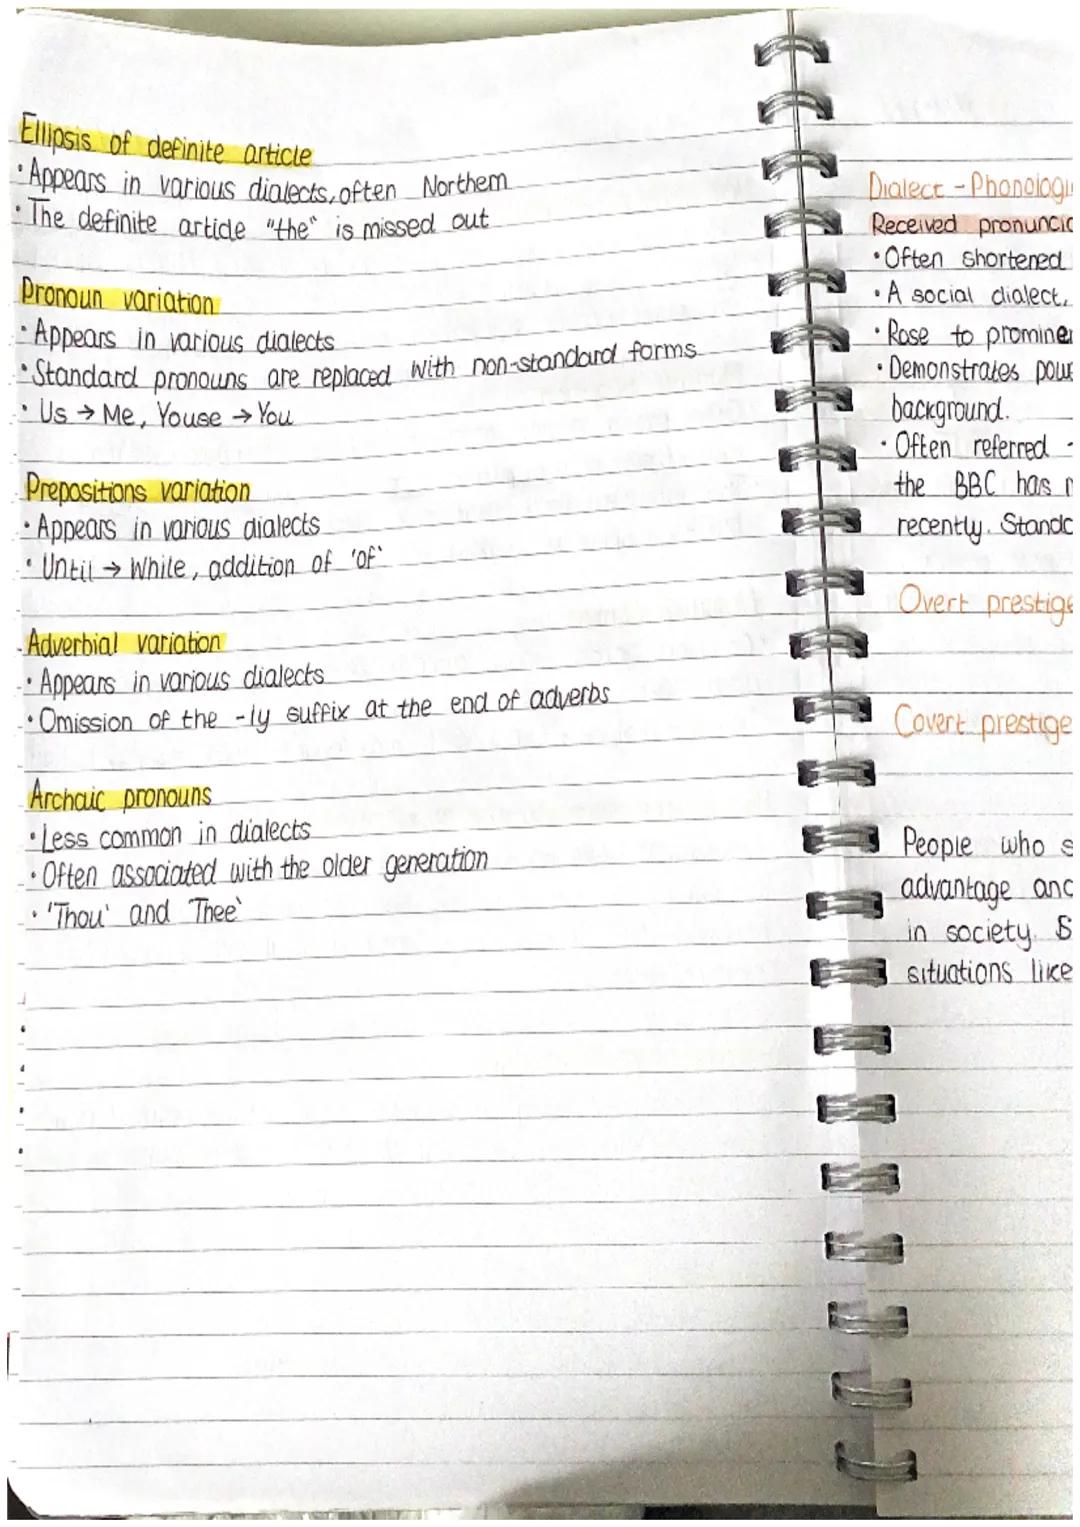 Ellipsis of definite article
• Appears in various dialects, often Northern
• The definite article "the" is missed out
Pronoun variation
• Appears in various dialects
• Standard pronouns are replaced with non-standard forms
• Us → Me, Youse → You
Prepositions variation
• Appears in various dialects
• Until → While, addition of 'of'
Adverbial variation
• Appears in various dialects
• Omission of the -ly suffix at the end of adverbs
Archaic pronouns
• Less common in dialects
• Often associated with the older generation
• 'Thou' and 'Thee'
Dialect - Phonologi
Received pronuncia
• Often shortened
• A social dialect,
• Rose to prominen
• Demonstrates powe
background.
• Often referred
the BBC has
recently. Standa
Overt prestige
Covert prestige
People who s
advantage and
in society. S
situations like